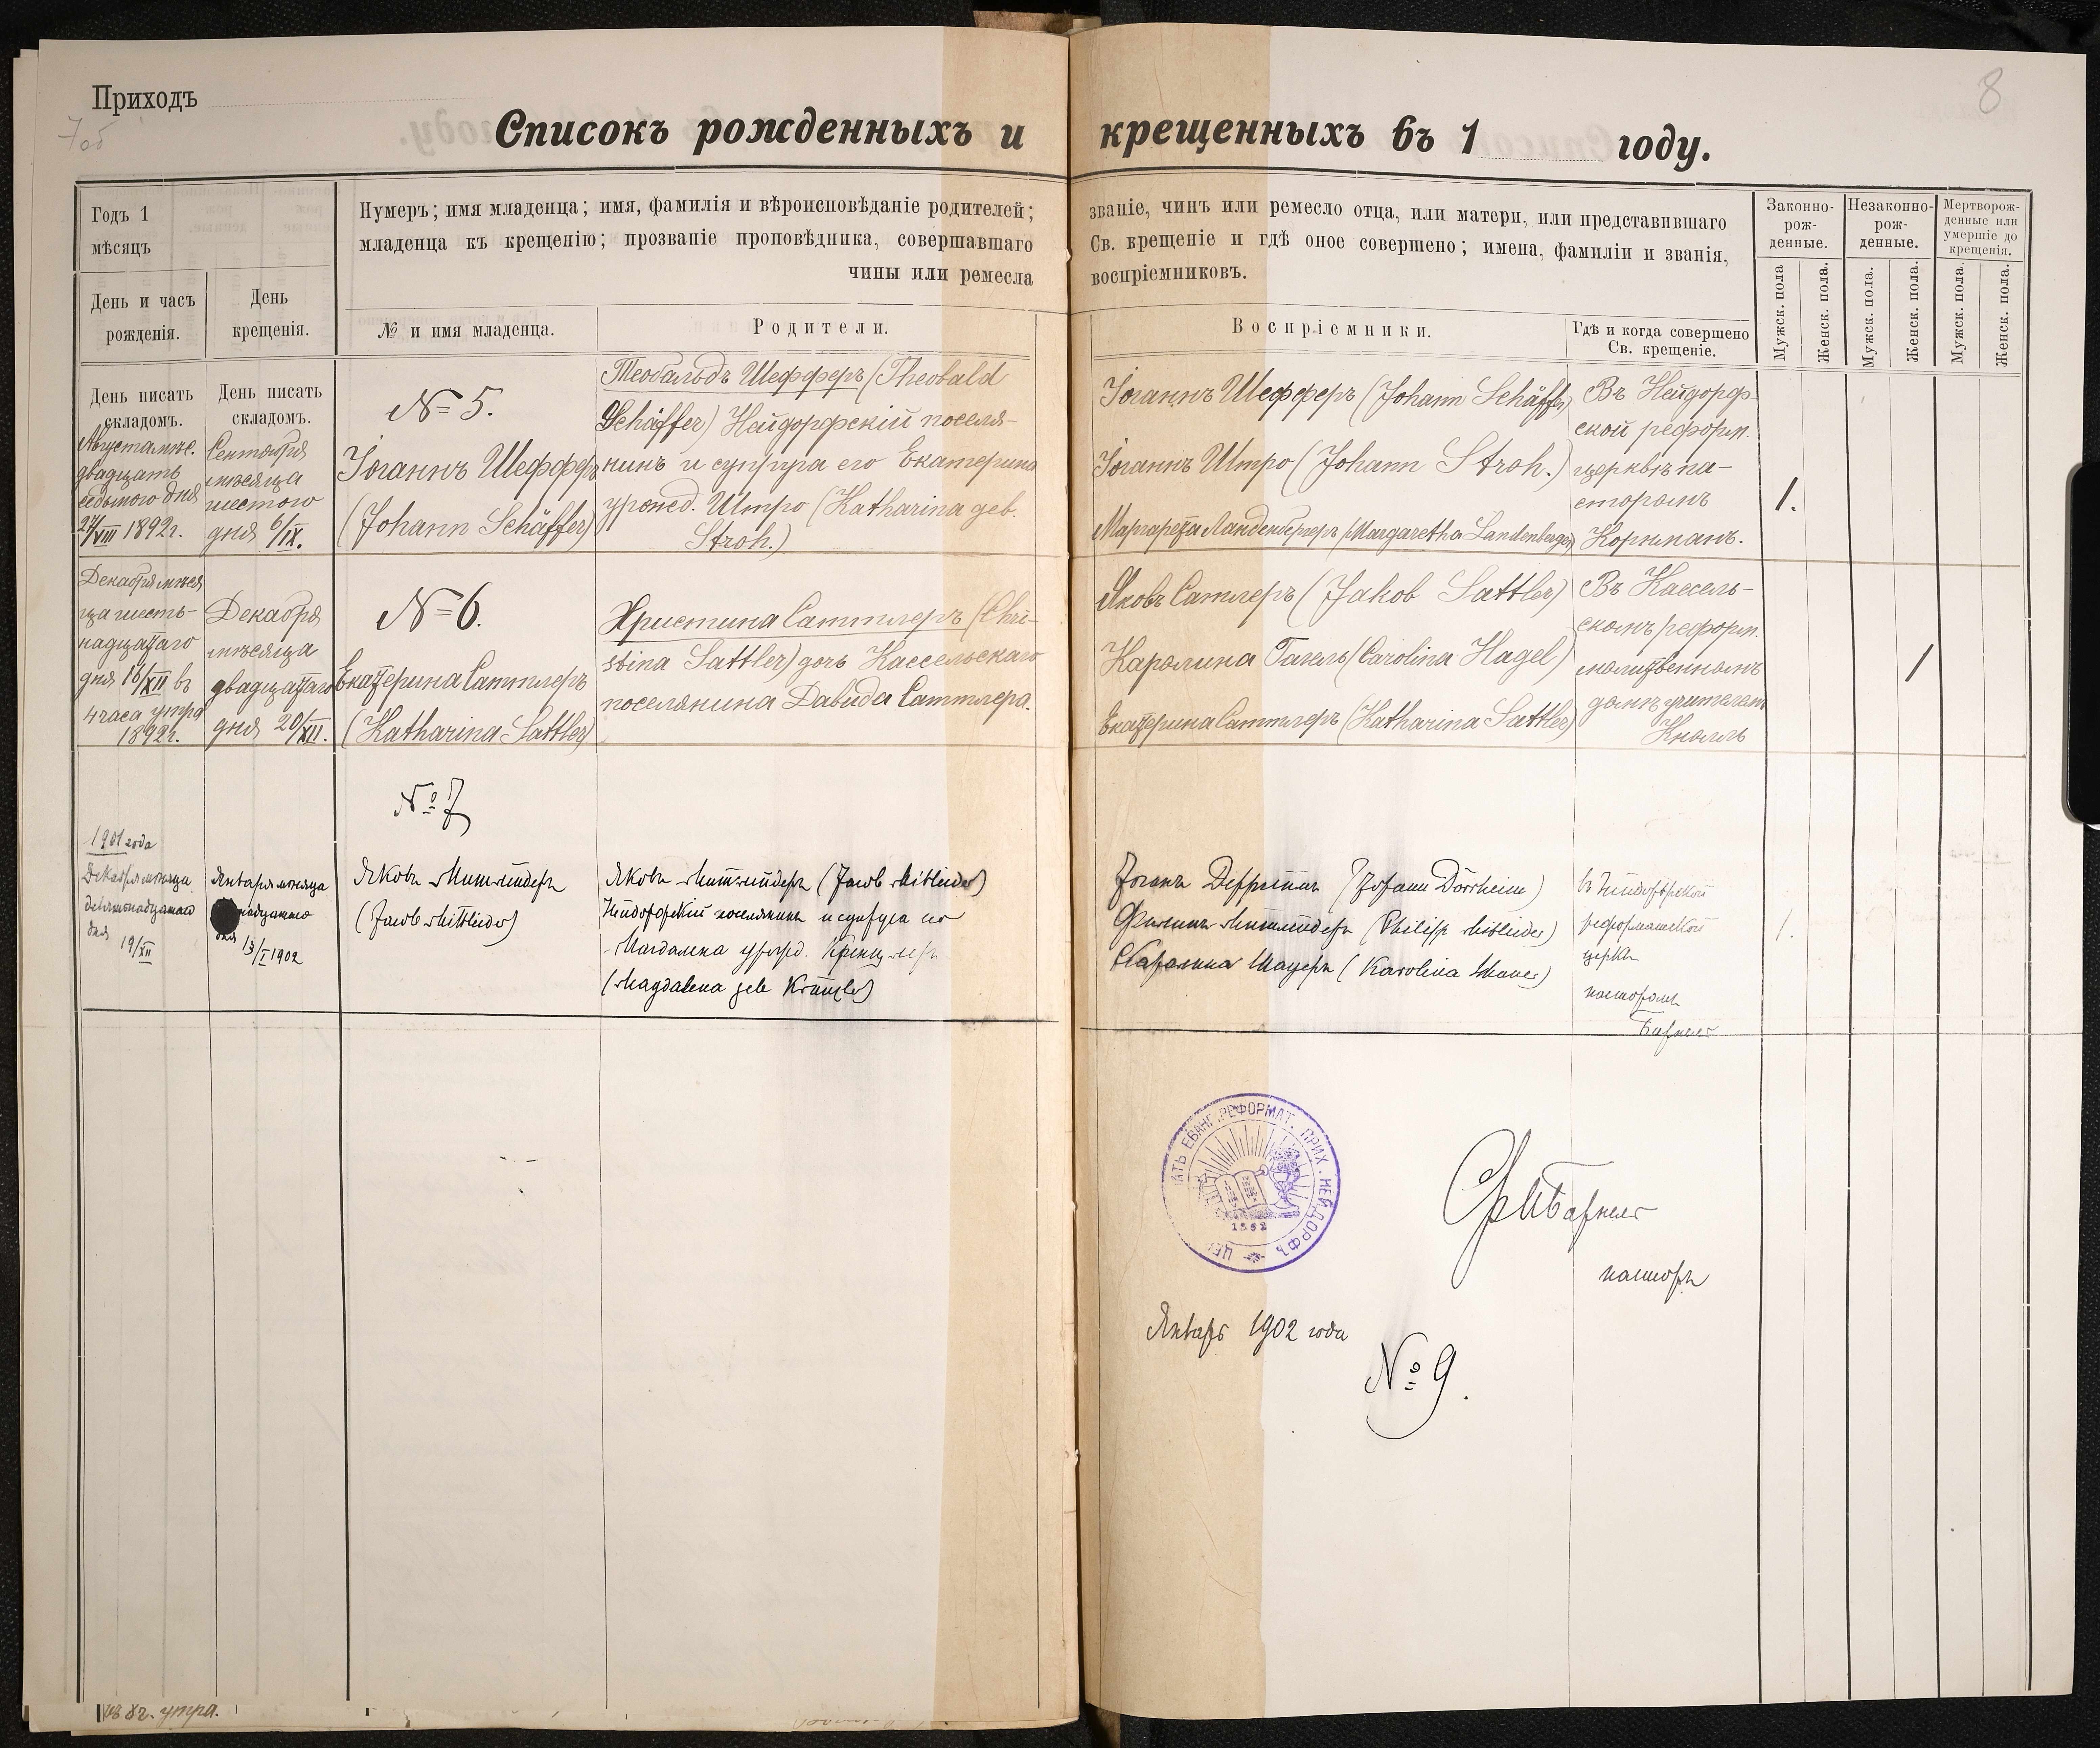 Приходъ
7об
8
Списокъ рожденныхъ и крещенныхъ въ 1 году.
Годъ 1
мѣсяцъ
День и часъ
рожденія.
День
крещенія.
Нумеръ; имя младенца; имя, фамилія и вѣроисповѣданіе родителей;
младенца къ крещенію; прозваніе проповѣдника, совершавшаго
чины или ремесла
№ и имя младенца.
Родители.
званіе, чинъ или ремесло отца, или матери, или представившаго
Св. крещеніе и гдѣ оное совершено; имена, фамиліи и званія,
воспріемниковъ.
Воспріемники.
Гдѣ и когда совершено
Св. крещеніе.
Законно-
рож-
денные.
Незаконно-
рож-
денные.
Мертворож-
денные или
умершіе до
крещенія.
Мужск. пола
Женск. пола.
Мужск. пола.
Женск. пола.
Мужск. пола.
Женск. пола.
День писать
складомъ.
Августа мѣс.
двадцать
седьмого дня
27/VIII 1892г.
День писать
складомъ.
Сентября
мѣсяца
шестого
дня 6/IX.
№ 5.
Іоганнъ Шефферъ
(Johann Schäffer)
Теобальдъ Шефферъ (Theobald
Schäffer) Нейдорфскій поселя-
нинъ и супруга его Екатерина
урожд. Штро (Katharina geb.
Stroh.)
Іоганнъ Шефферъ (Johann Schäffer)
Іоганнъ Штро (Johann Stroh.)
Маргарета Ланденбергеръ (Margaretha Landenberger)
Въ Нейдорф-
ской реформ.
церквѣ па-
сторомъ
Корнманъ.
1.
Декабря мѣся
ца шесть-
надцатаго
дня 16/XII въ
4 часа утра
1892г.
Декабря
мѣсяца
двадцатаго
дня 20/XII.
№ 6.
Екатерина Саттлеръ
(Katharina Sattler)
Христина Саттлеръ (Chri-
stina Sattler) дочь Кассельскаго
поселянина Давида Саттлера.
Яковъ Сатлеръ (Jakob Sattler)
Каролина Гагель (Carolina Hagel)
Екатерина Саттлеръ (Katharina Sattler)
Въ Кассель-
скомъ реформ.
молитвенномъ
домѣ учителемъ
Кноллъ
1
№ 7
1901 года
Декабря мѣсяца
девятнадцатаго
дня
19/XII
Января мѣсяца
надцатаго
дня 13/I 1902
Яковъ Митлейдеръ
(Jacob Mittleider)
Яковъ Митлейдеръ (Jacob Mitleider)
Нейдорфскій поселянинъ и супруга его
Магдалина урожд. Кренцлеръ
(Magdalena geb Kränzler)
Іоганъ Дерргеймъ (Johann Dörrheim)
Филиппъ Митлейдеръ (Philipp Mitleider)
Каролина Мауеръ (Karolina Mauer)
въ Нейдорфской
реформатской
церкви
пасторомъ
1.
ПЕЧАТЬ ЕВАНГ. РЕФОРМАТ. ПРИХ. НЕЙДОРФЪ
1862
пасторъ
Январь 1902 года
№ 9.
въ 8 ч. утра.